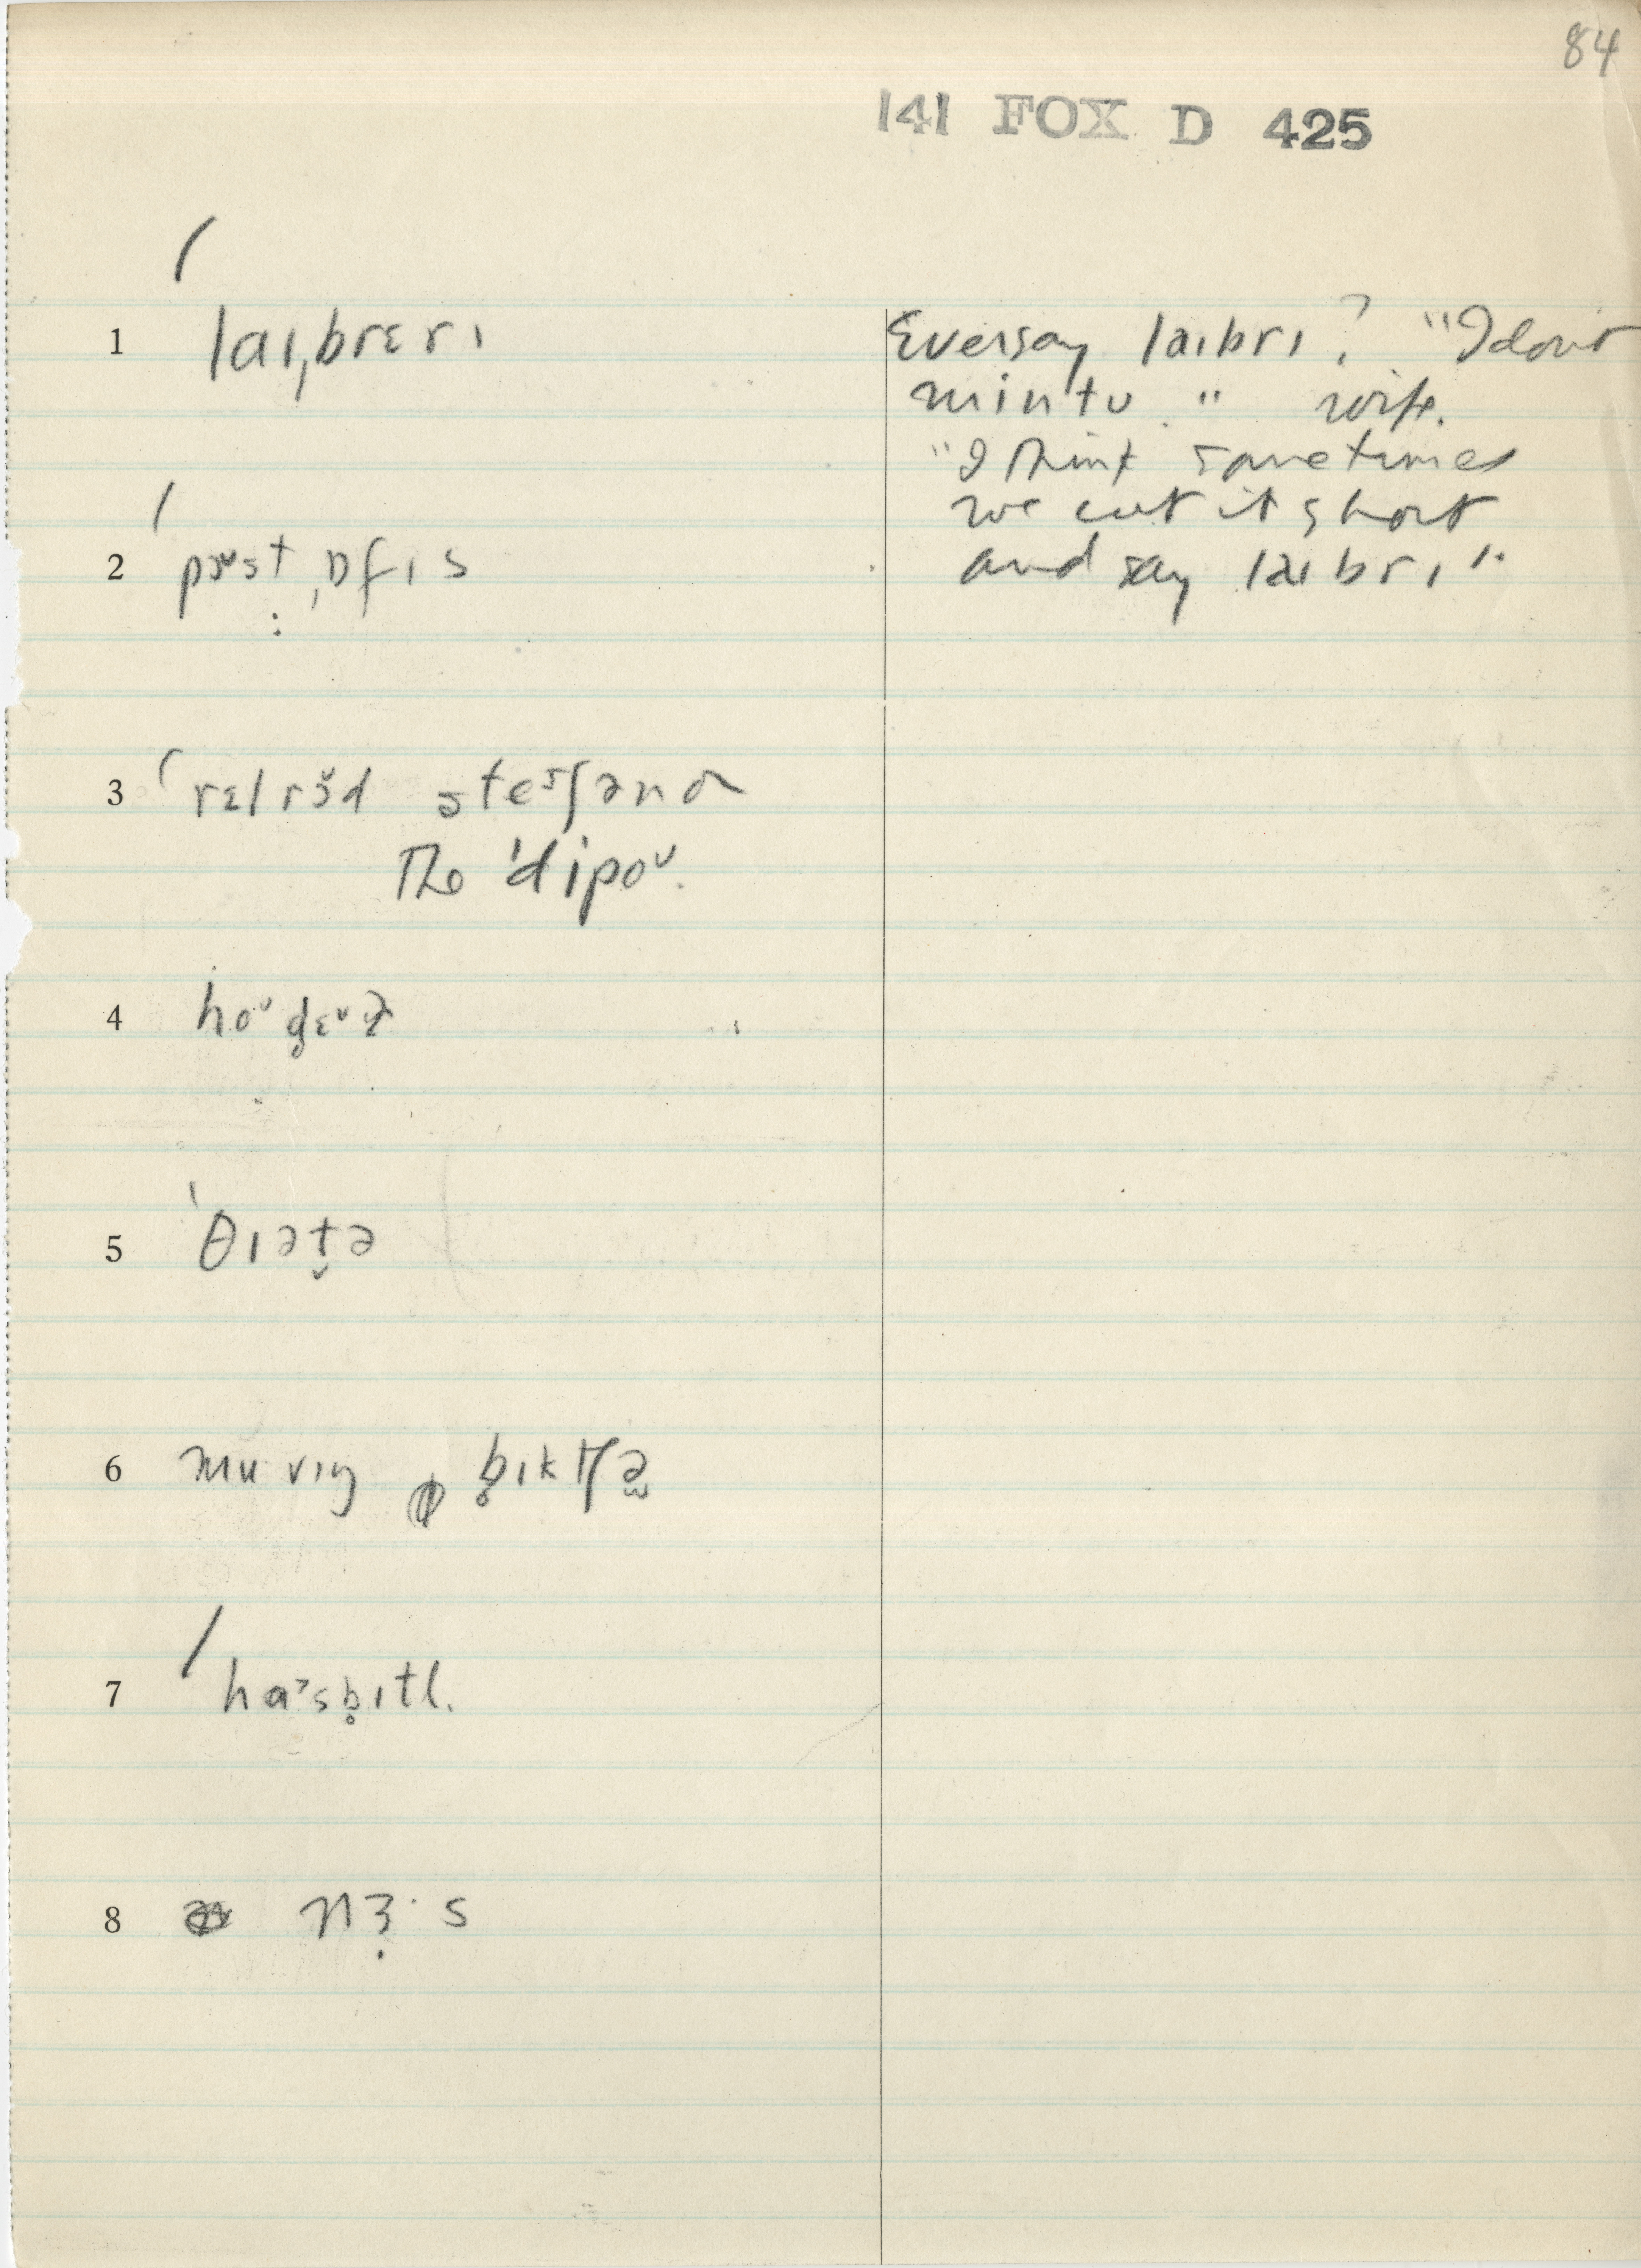 84
141 FOX D 425
1 ˈlaɪˌbrɛrɪ
Ever say laɪbrɪ? "I don't
mintu." wife.
"I think sometimes
we cut it short
and say laɪbrɪ".
2 ˈpoʊst ˌɒfɪs
3 ˈrɛlrɔ̆d steɪʃən or
The ˈdipoʊ.
4 hoʊd̥ɛʊɫ
5 ˈθɪət̬ə
6 muvɪŋ b̥ɪktʃə
7 ˈhaˑsb̥ɪtl.
8 nɜ̣ˑs